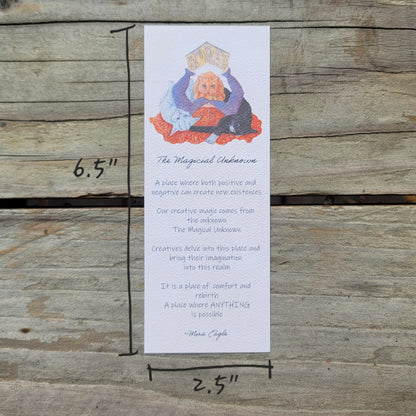 The Magical Unknown
A place where both positive and
negative can create new existences
Our creative magic comes from
the unknown
The Magical Unknown
Creatives delve into this place and
bring their imagination
into this realm
It is a place of comfort and
rebirth
A place where ANYTHING
is possible
~Mara Eagle
6.5"
2.5"